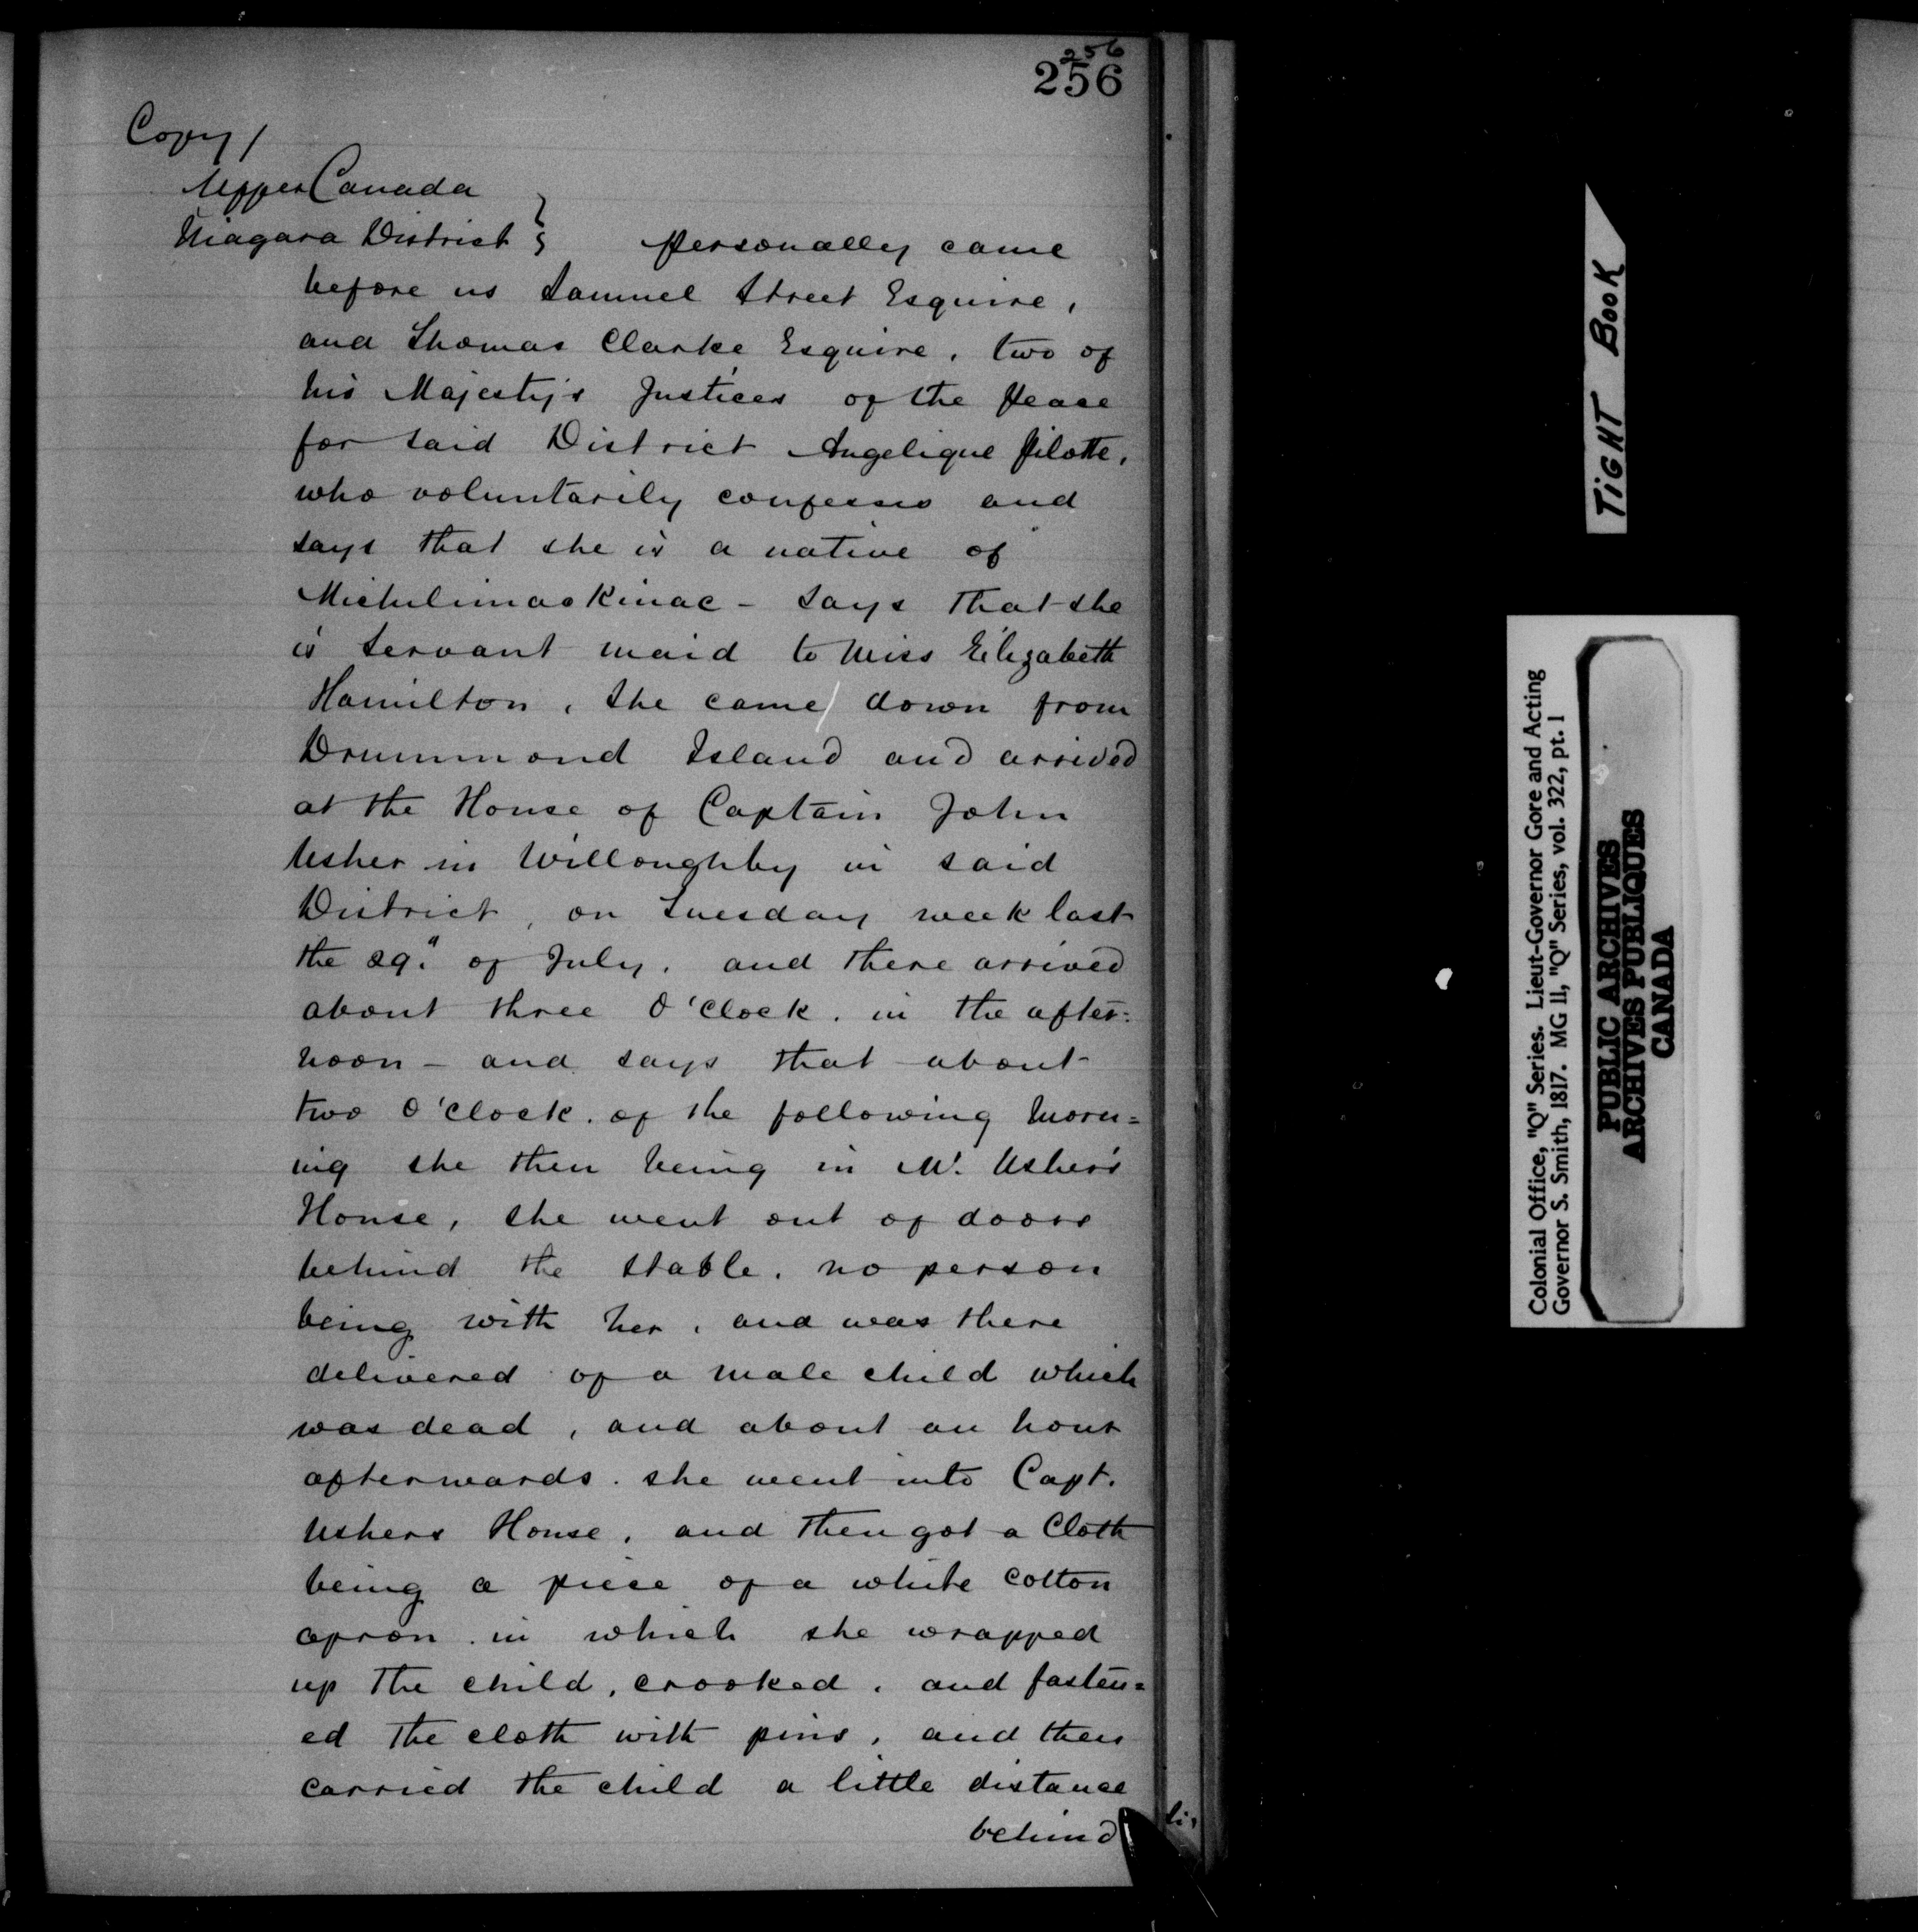 256
256
Copy /
Upper Canada
Niagara District } personally came
before us Samuel Street Esquire,
and Thomas Clarke Esquire, two of
his Majesty's Justices of the Peace
for said District Angelique Pilotte,
who voluntarily confesses and
says that she is a native of
Michilimackinac - says that she
is servant maid to Miss Elizabeth
Hamilton, she came down from
Drummond Island and arrived
at the House of Captain John
Usher in Willoughby in said
District, on Tuesday week last
the 29." of July. and there arrived
about three O'Clock. in the after=
noon - and says that about
two O'Clock. of the following Morn=
ing she then being in Mr. Usher's
House, she went out of doors
behind the stable. no person
being with her, and was there
delivered of a male child which
was dead, and about an hour
afterwards. she went into Capt.
Ushers House, and then got a Cloth
being a piece of a white cotton
apron in which she wrapped
up the child, crooked, and fasten=
ed the cloth with pins, and then
carried the child a little distance
behind
TIGHT BOOK
Colonial Office, "Q" Series. Lieut-Governor Gore and Acting
Governor S. Smith, 1817. MG 11, "Q" Series, vol. 322, pt. 1
PUBLIC ARCHIVES
ARCHIVES PUBLIQUES
CANADA